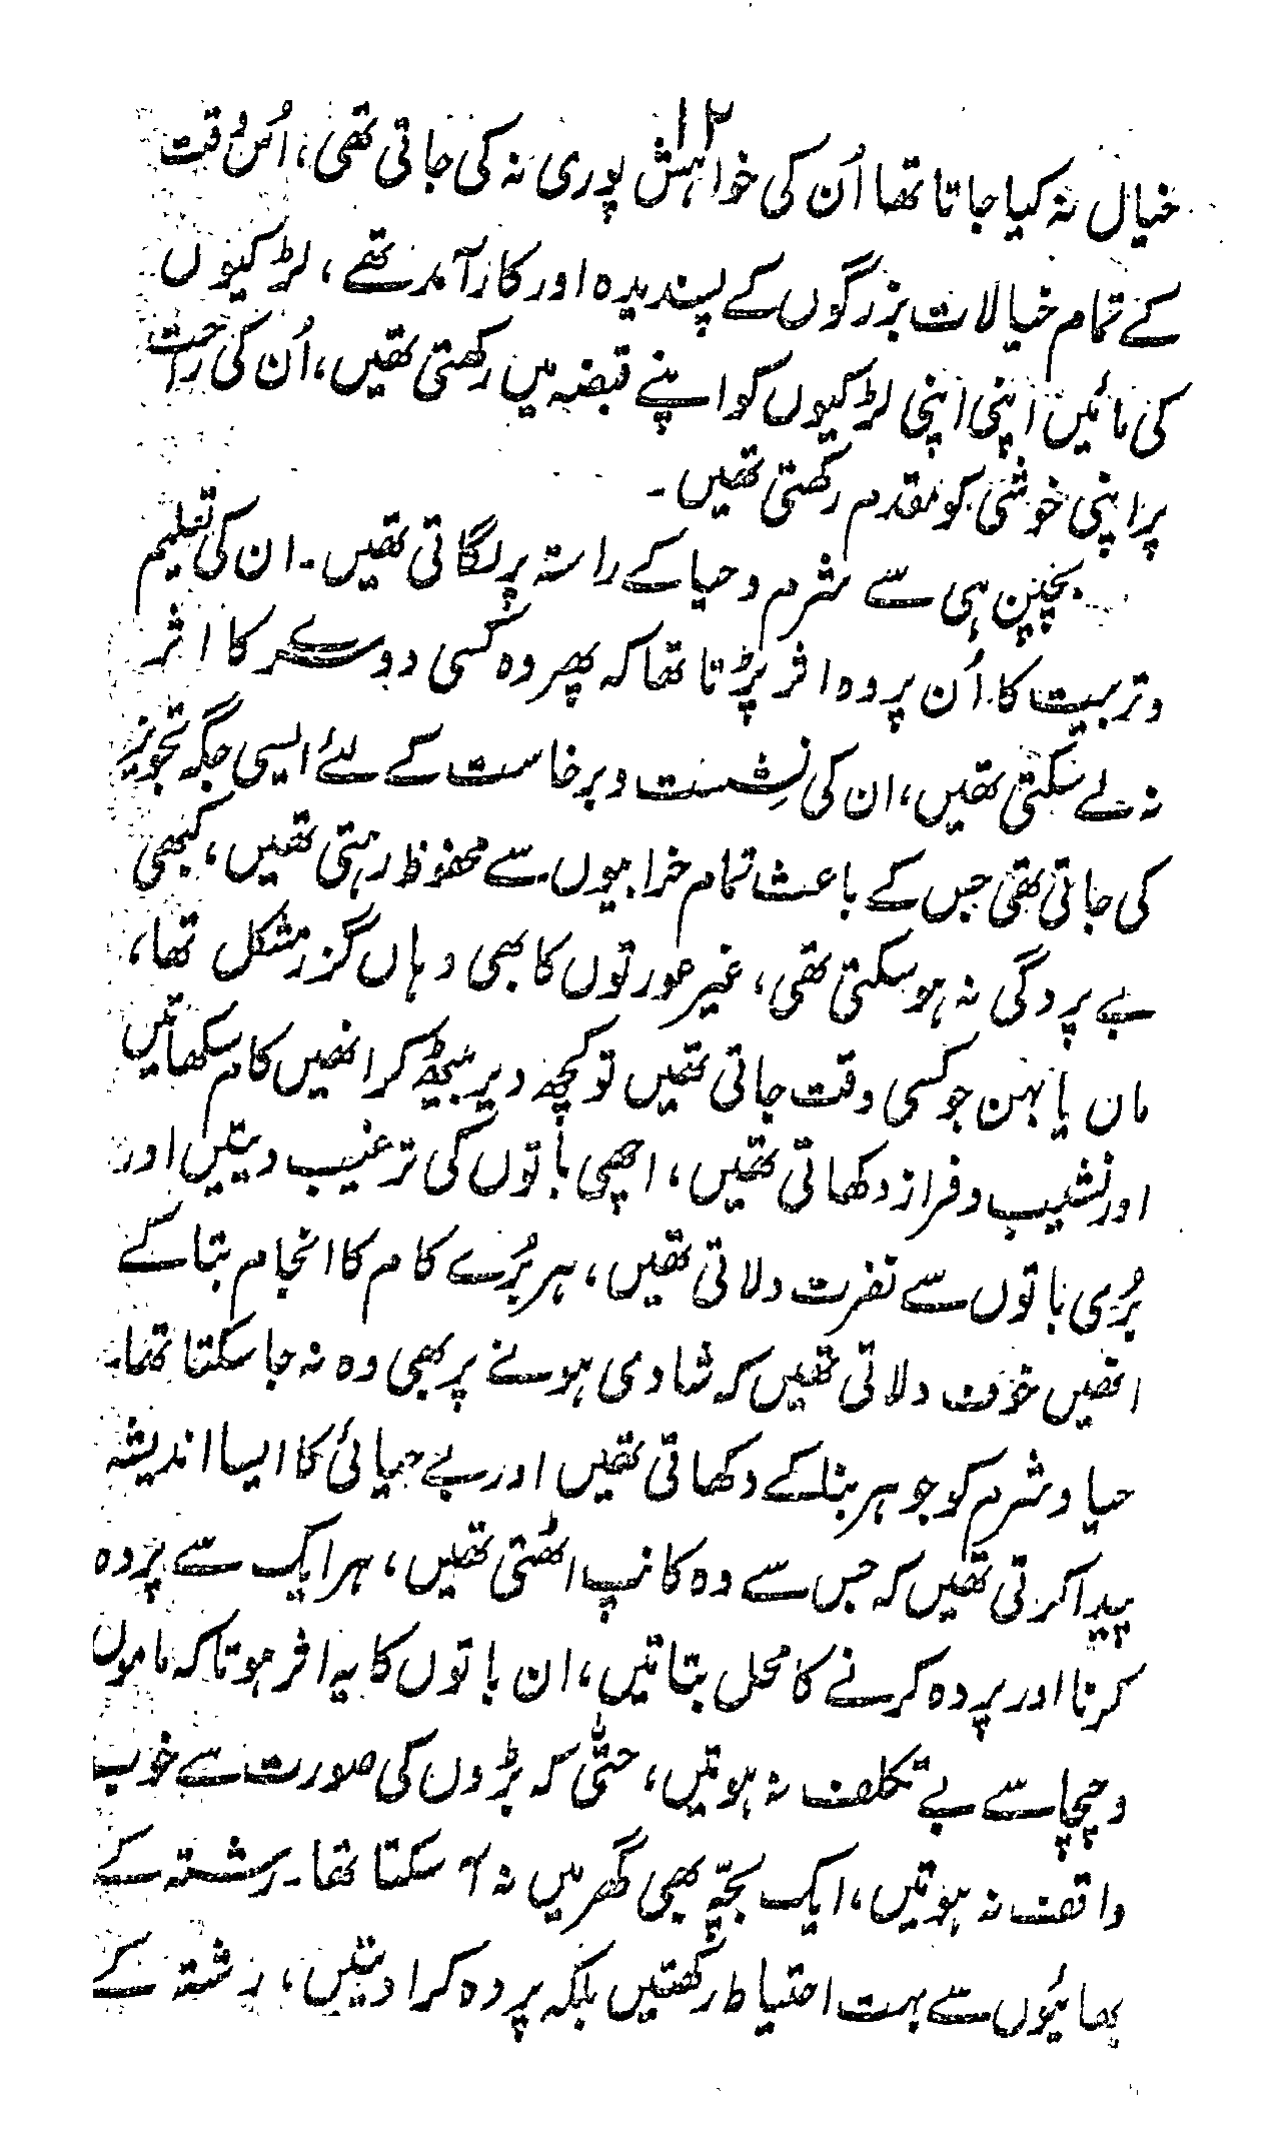 ۱۲
خیال نہ کیا جاتا تھا اُن کی خواہش پوری نہ کی جاتی تھی، اُس وقت
کے تمام خیالات بزرگوں کے پسندیدہ اور کارآمد تھے، لڑکیوں
کی مائیں اپنی اپنی لڑکیوں کو اپنے قبضہ میں رکھتی تھیں، اُن کی راحت
پر اپنی خوشی کو مقدم رکھتی تھیں۔
بچپن ہی سے شرم و حیا کے راستہ پر لگاتی تھیں۔ ان کی تعلیم
و تربیت کا اُن پر وہ اثر پڑتا تھا کہ پھر وہ کسی دوسرے کا اثر
نہ لے سکتی تھیں، ان کی نِشست و برخاست کے لئے ایسی جگہ تجویز
کی جاتی تھی جس کے باعث تمام خرابیوں سے محفوظ رہتی تھیں، کبھی
بے پردگی نہ ہو سکتی تھی، غیر عورتوں کا بھی وہاں گزر مشکل تھا،
ماں یا بہن جو کسی وقت جاتی تھیں تو کچھ دیر بیٹھ کر انھیں کام سکھاتیں
اور نشیب و فراز دکھاتی تھیں، اچھی باتوں کی ترغیب دیتیں اور
بُری باتوں سے نفرت دلاتی تھیں، ہر بُرے کام کا انجام بتا کے
انھیں خوف دلاتی تھیں کہ شادی ہونے پر بھی وہ نہ جا سکتا تھا۔
حیا و شرم کو جوہر بنا کے دکھاتی تھیں اور بے حیائی کا ایسا اندیشہ
پیدا کرتی تھیں کہ جس سے وہ کانپ اٹھتی تھیں، ہر ایک سے پردہ
کرنا اور پردہ کرنے کا محل بتاتیں، ان باتوں کا یہ اثر ہوتا کہ ماموں
و چچا سے بے تکلف نہ ہوتیں، حتّٰی کہ بڑوں کی صورت سے خوب
واقف نہ ہوتیں، ایک بچّہ بھی گھر میں نہ آ سکتا تھا۔ رشتہ کے
بھائیوں سے بہت احتیاط رکھتیں بلکہ پردہ کرا دیتیں، رشتہ کے